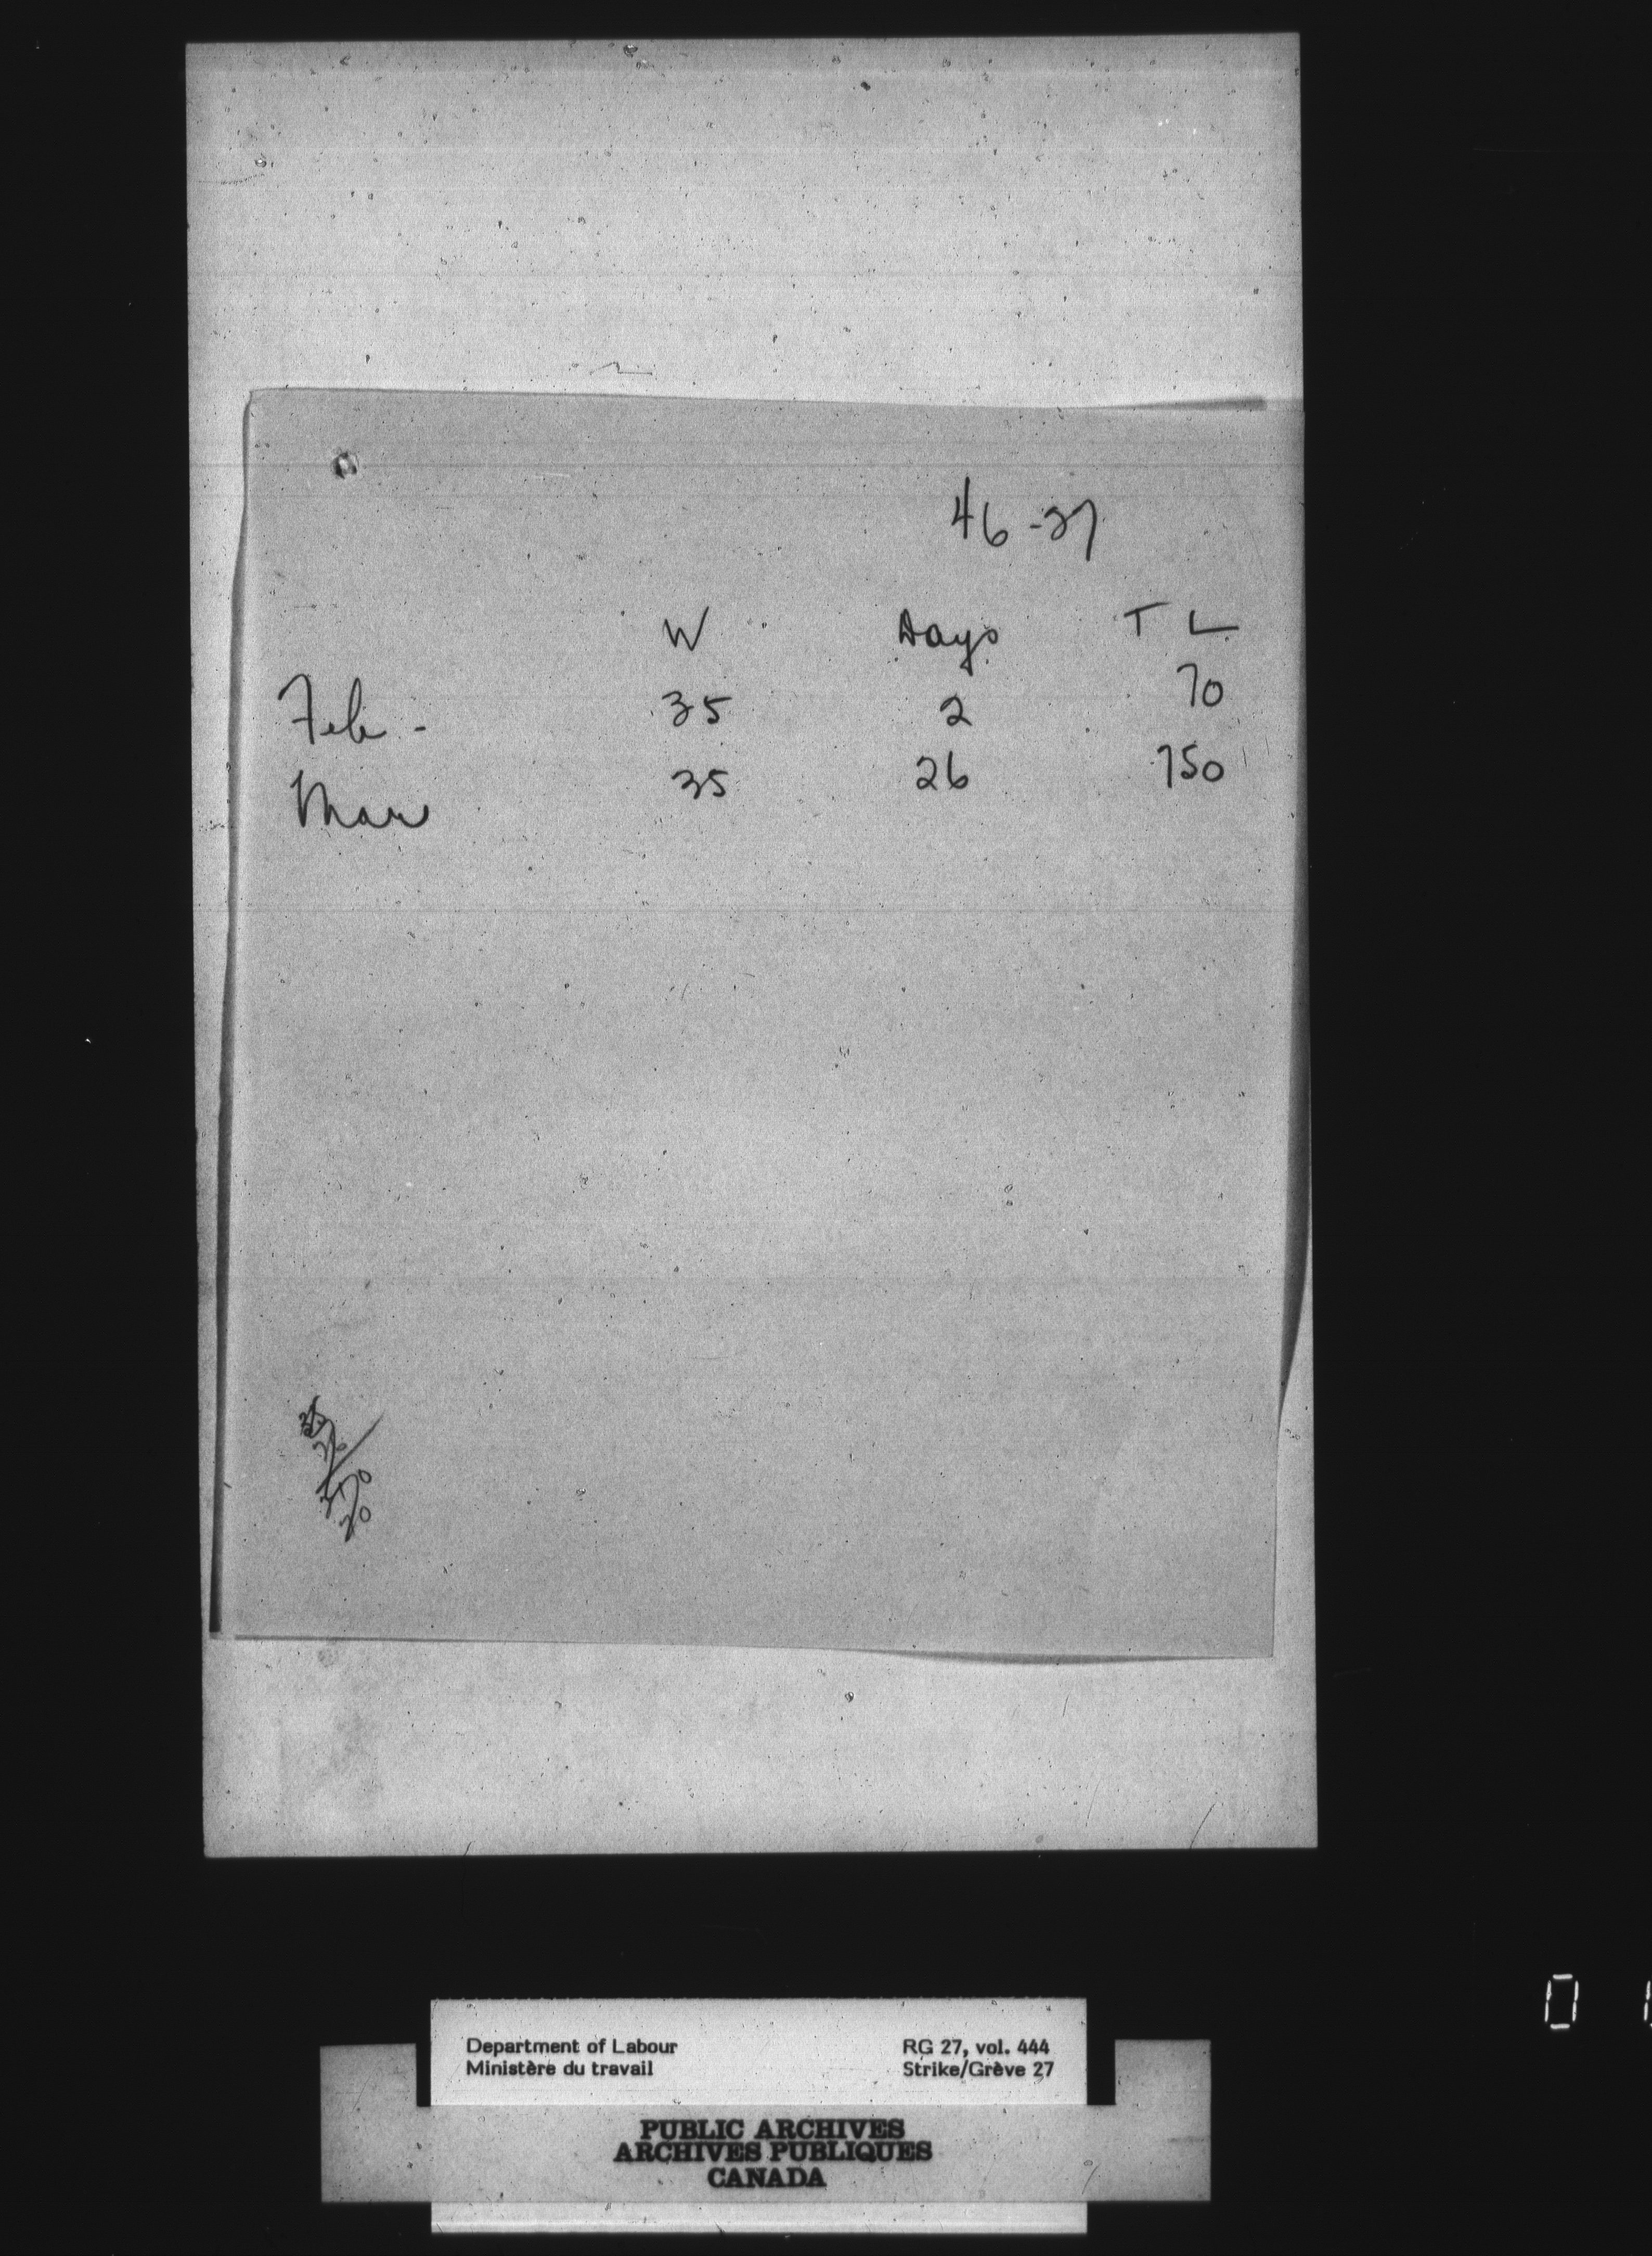 46-27
W Days T L
Feb - 35 2 70
Mar 35 26 750
35
26
70
Department of Labour
Ministère du travail
RG 27, vol. 444
Strike/Grève 27
PUBLIC ARCHIVES
ARCHIVES PUBLIQUES
CANADA
0